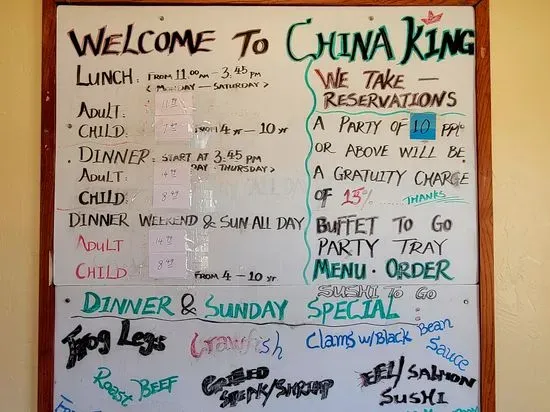 WELCOME TO CHINA KING
LUNCH: FROM 11:00 AM - 3:45 PM
< MONDAY - SATURDAY >
ADULT:
CHILD: FROM 4 yr - 10 yr
DINNER: START AT 3:45 PM
DAY - THURSDAY >
ADULT:
CHILD:
DINNER WEEKEND & SUN ALL DAY
ADULT
CHILD: FROM 4 - 10 yr
WE TAKE —
RESERVATIONS
A PARTY OF 10 PPL
OR ABOVE WILL BE
A GRATUITY CHARGE
OF 15% ...... THANKS
BUFFET TO GO
PARTY TRAY
MENU · ORDER
SUSHI TO GO
DINNER & SUNDAY SPECIAL:
Frog Legs
Crawfish
Clams w/Black Bean
Sauce
Roast BEEF
GRILLED
SHRIMP
EEL/SALMON
SUSHI